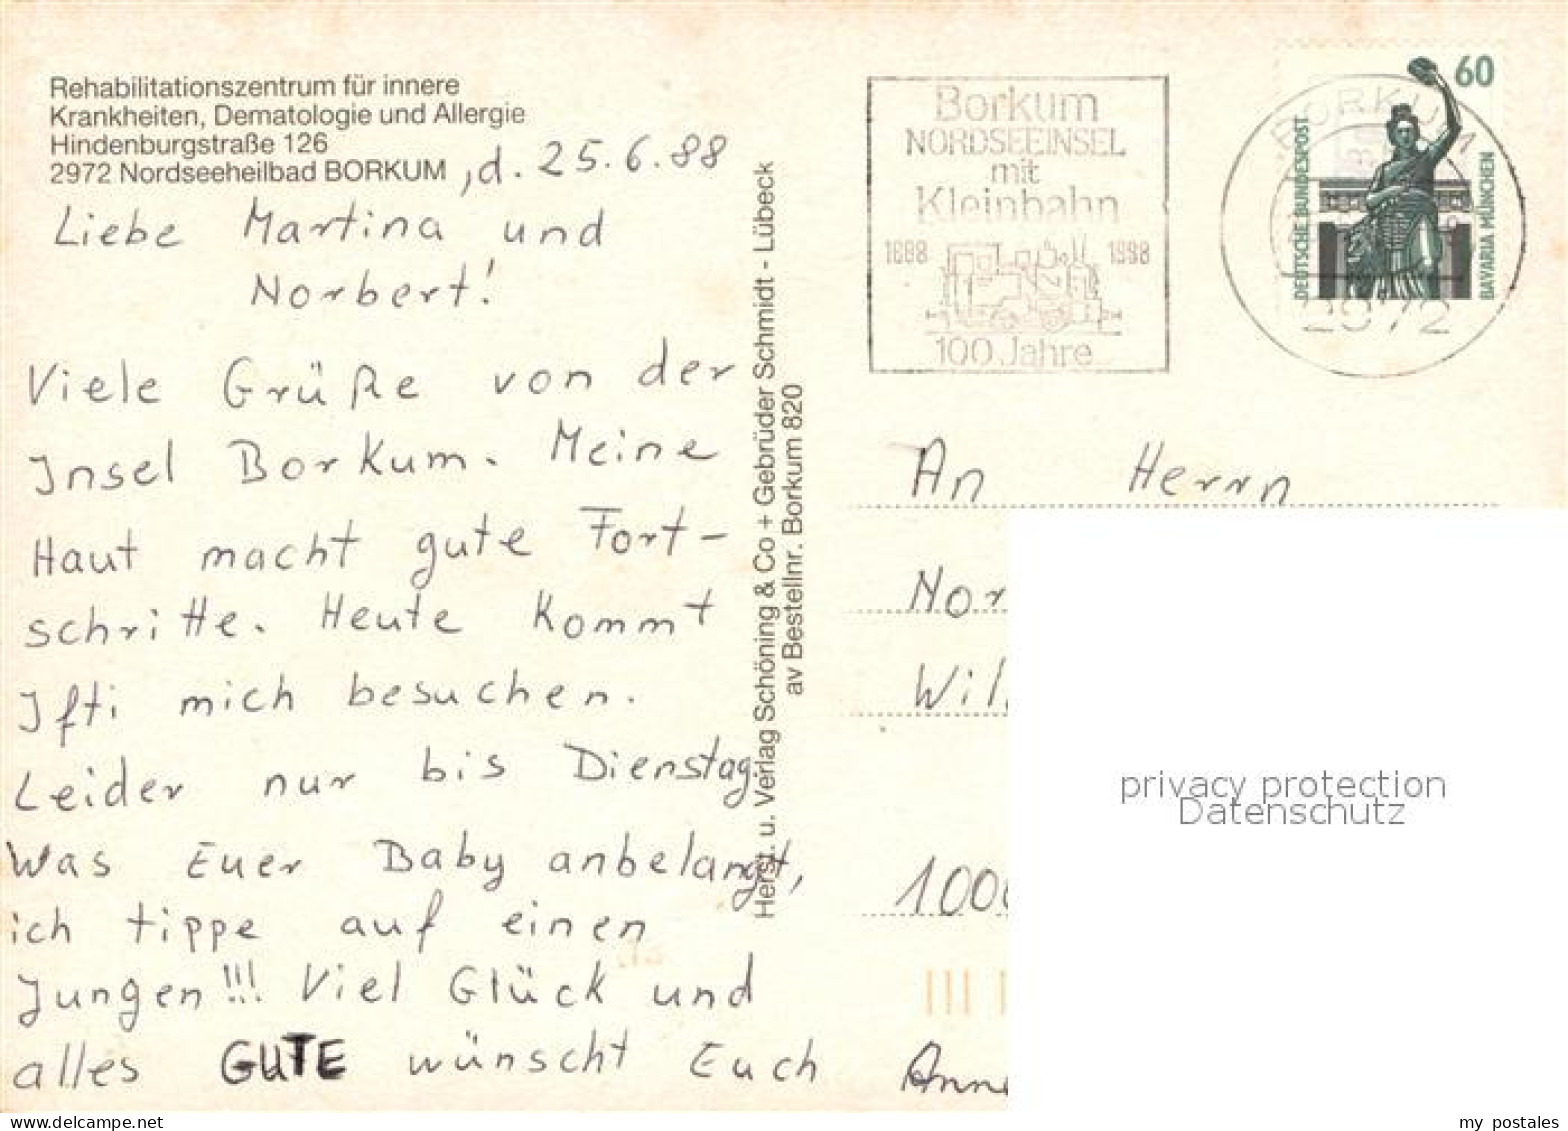 Rehabilitationszentrum für innere
Krankheiten, Dematologie und Allergie
Hindenburgstraße 126
2972 Nordseeheilbad BORKUM , d. 25.6.88
Liebe Martina und
Norbert!
Viele Grüße von der
Insel Borkum. Meine
Haut macht gute Fort-
schritte. Heute kommt
Ifti mich besuchen.
Leider nur bis Dienstag.
Was Euer Baby anbelangt,
ich tippe auf einen
Jungen!!! Viel Glück und
alles GUTE wünscht Euch Anne
Herst. u. Verlag Schöning & Co + Gebrüder Schmidt - Lübeck
av Bestellnr. Borkum 820
Borkum
NORDSEEINSEL
mit
Kleinbahn
1888 1988
100 Jahre
BORKUM 1
2972
60
DEUTSCHE BUNDESPOST
BAVARIA MÜNCHEN
An Herrn
Nor
Wil
1000
privacy protection
Datenschutz
delcampe.net
my_postales